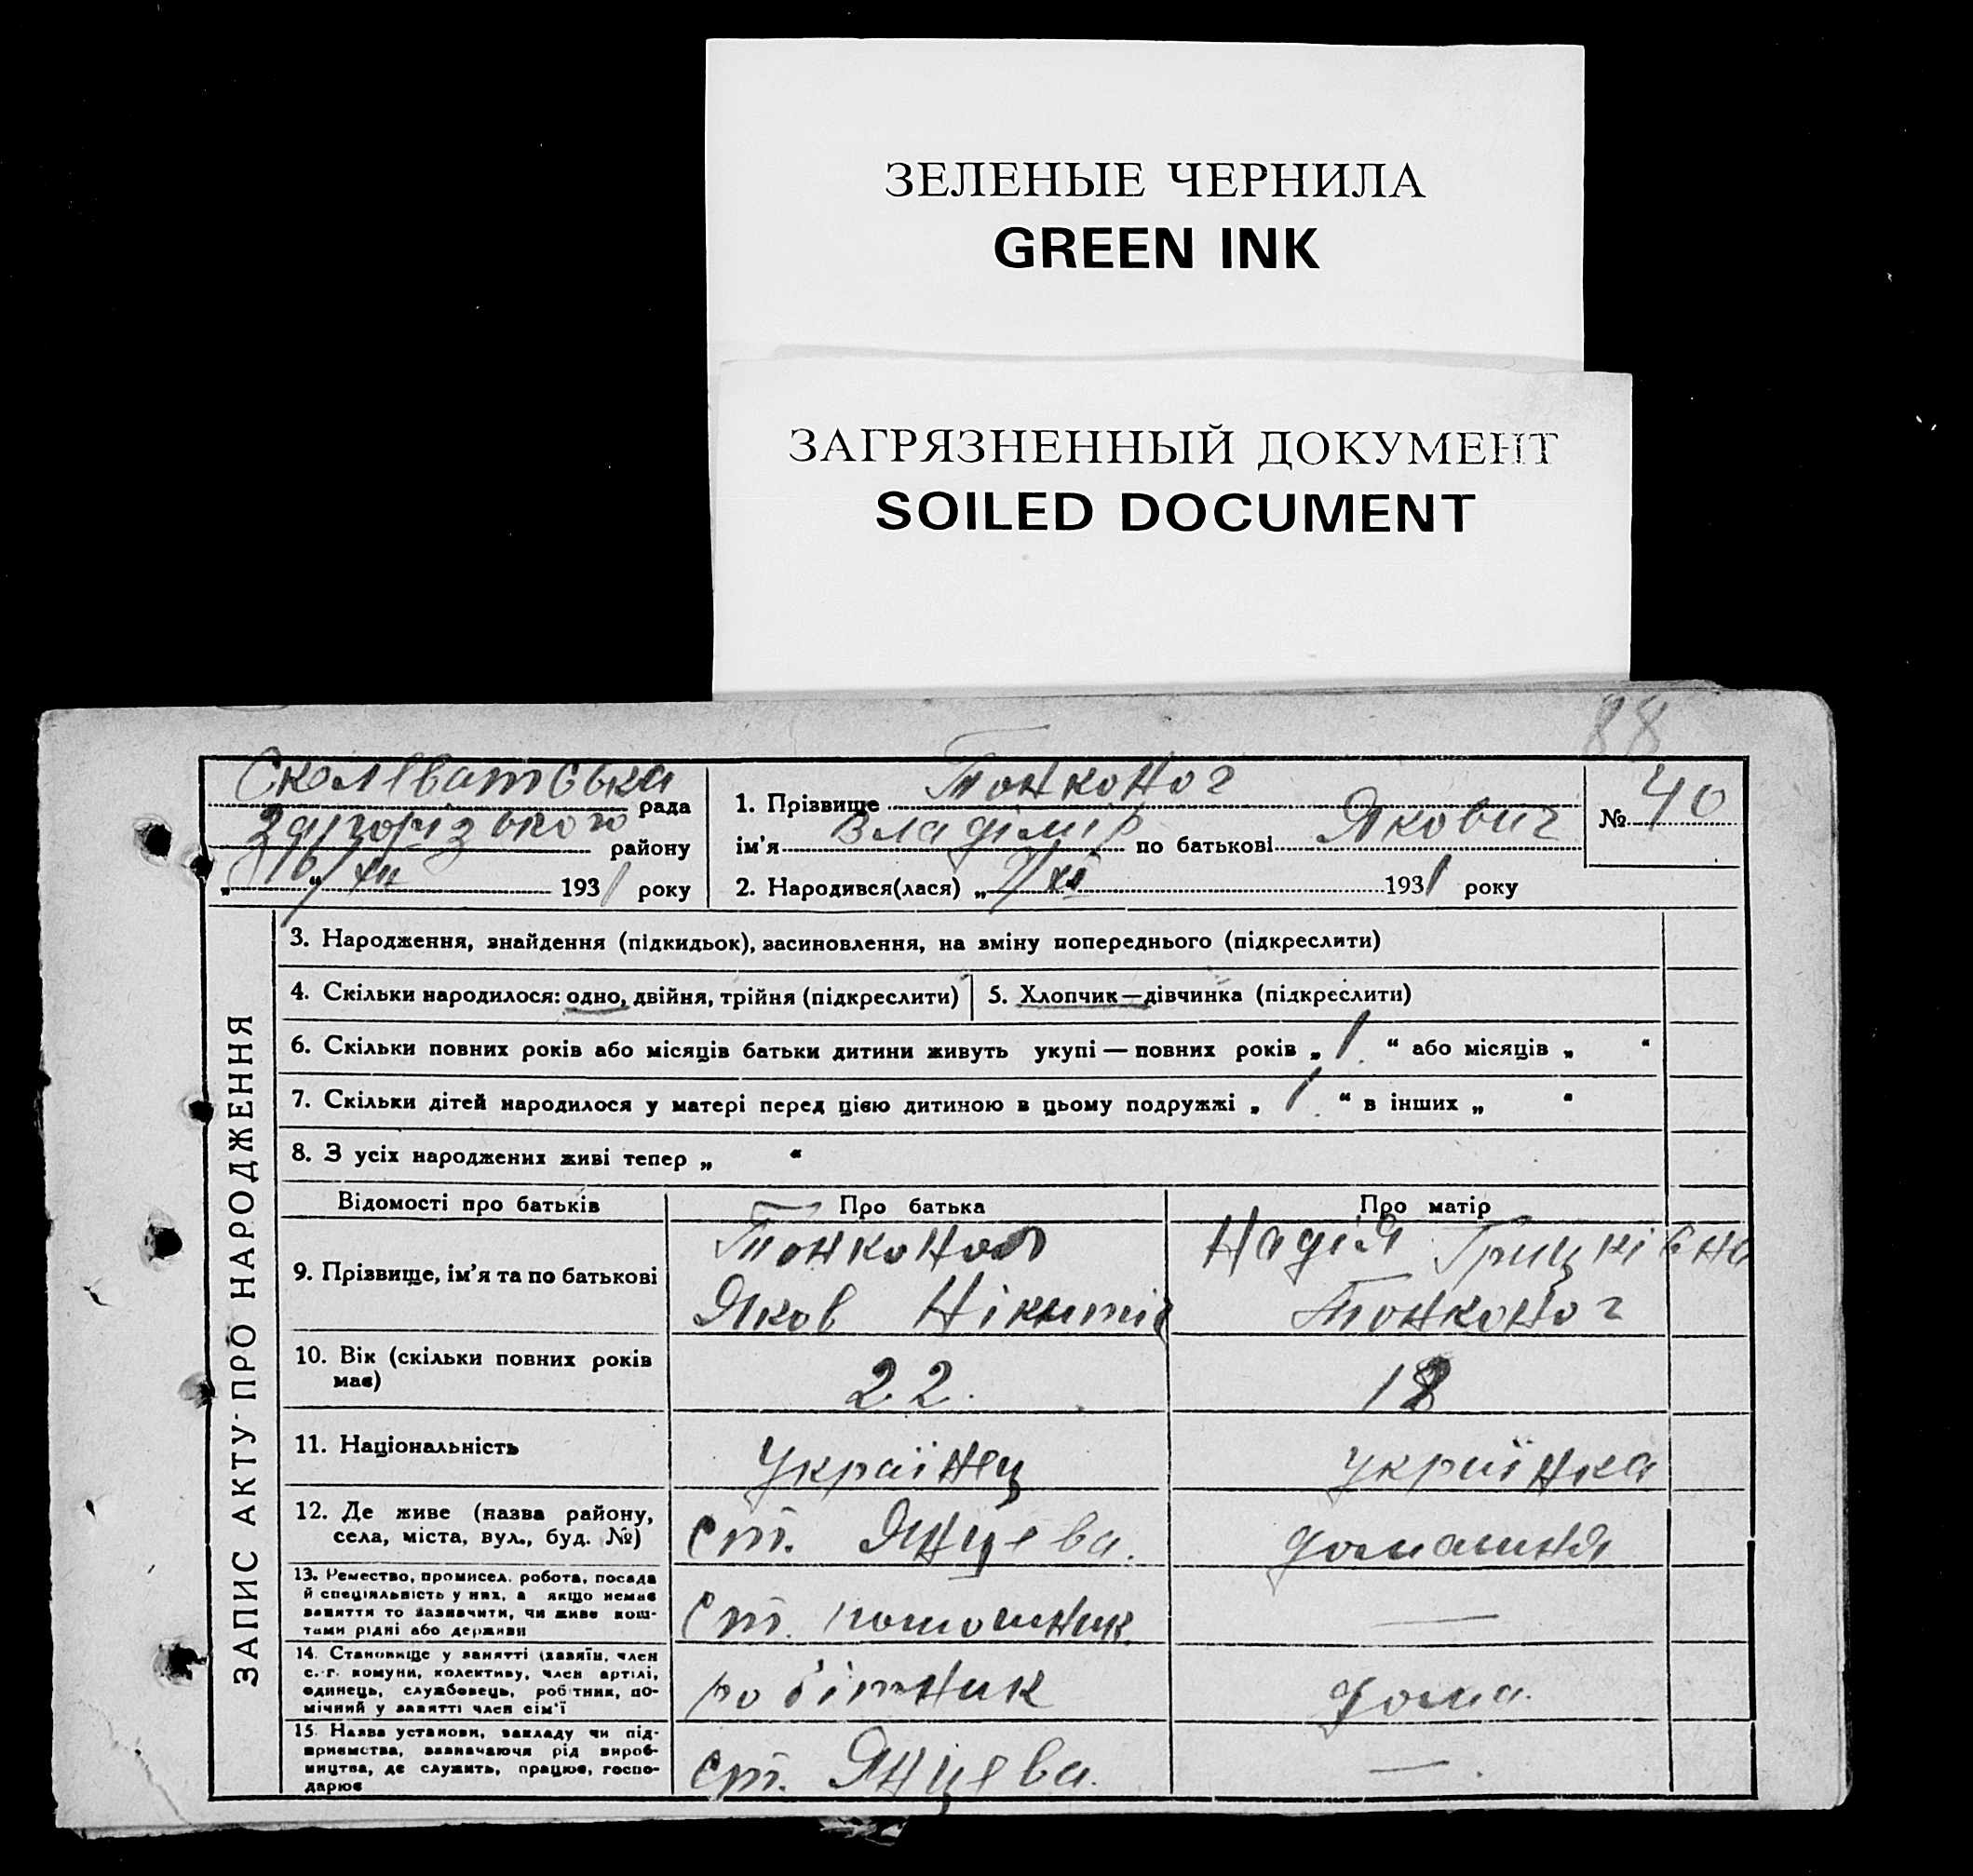 ЗЕЛЕНЫЕ ЧЕРНИЛА
GREEN INK
ЗАГРЯЗНЕННЫЙ ДОКУМЕНТ
SOILED DOCUMENT
88
рада
району
16/XII 1931 року
1. Прізвище Тонконог
ім'я Владімір по батькові Якович
2. Народився(лася) „7/XI 1931 року
№ 40
ЗАПИС АКТУ ПРО НАРОДЖЕННЯ
3. Народження, знайдення (підкидьок), засиновлення, на зміну попереднього (підкреслити)
4. Скільки народилося: одно, двійня, трійня (підкреслити)
5. Хлопчик—дівчинка (підкреслити)
6. Скільки повних років або місяців батьки дитини живуть укупі — повних років „ 1 “ або місяців „ “
7. Скільки дітей народилося у матері перед цією дитиною в цьому подружжі „ 1 “ в інших „ “
8. З усіх народжених живі тепер „ “
Відомості про батьків Про батька Про матір
9. Прізвище, ім'я та по батькові
Тонконог
Яков Нікитів
Надія Грицківна
Тонконог
10. Вік (скільки повних років має)
22. 18
11. Національність
Українец українка
12. Де живе (назва району,
села, міста, вул., буд. №)
ст. Янцева. домашня
13. Ремество, промисел, робота, посада
й спеціяльність у них, а якщо немає
заняття то зазначити, чи живе кош-
тами рідні або держави
ст. —
14. Становище у занятті (хазяїн, член
с.-г. комуни, колективу, член артілі,
одинець, службовець, робітник, по-
мічний у занятті член сім'ї
робітник дома.
15. Назва установи, закладу чи під-
приємства, зазначаючи рід вироб-
ництва, де служить, працює, госпо-
дарює
ст. Янцева. —